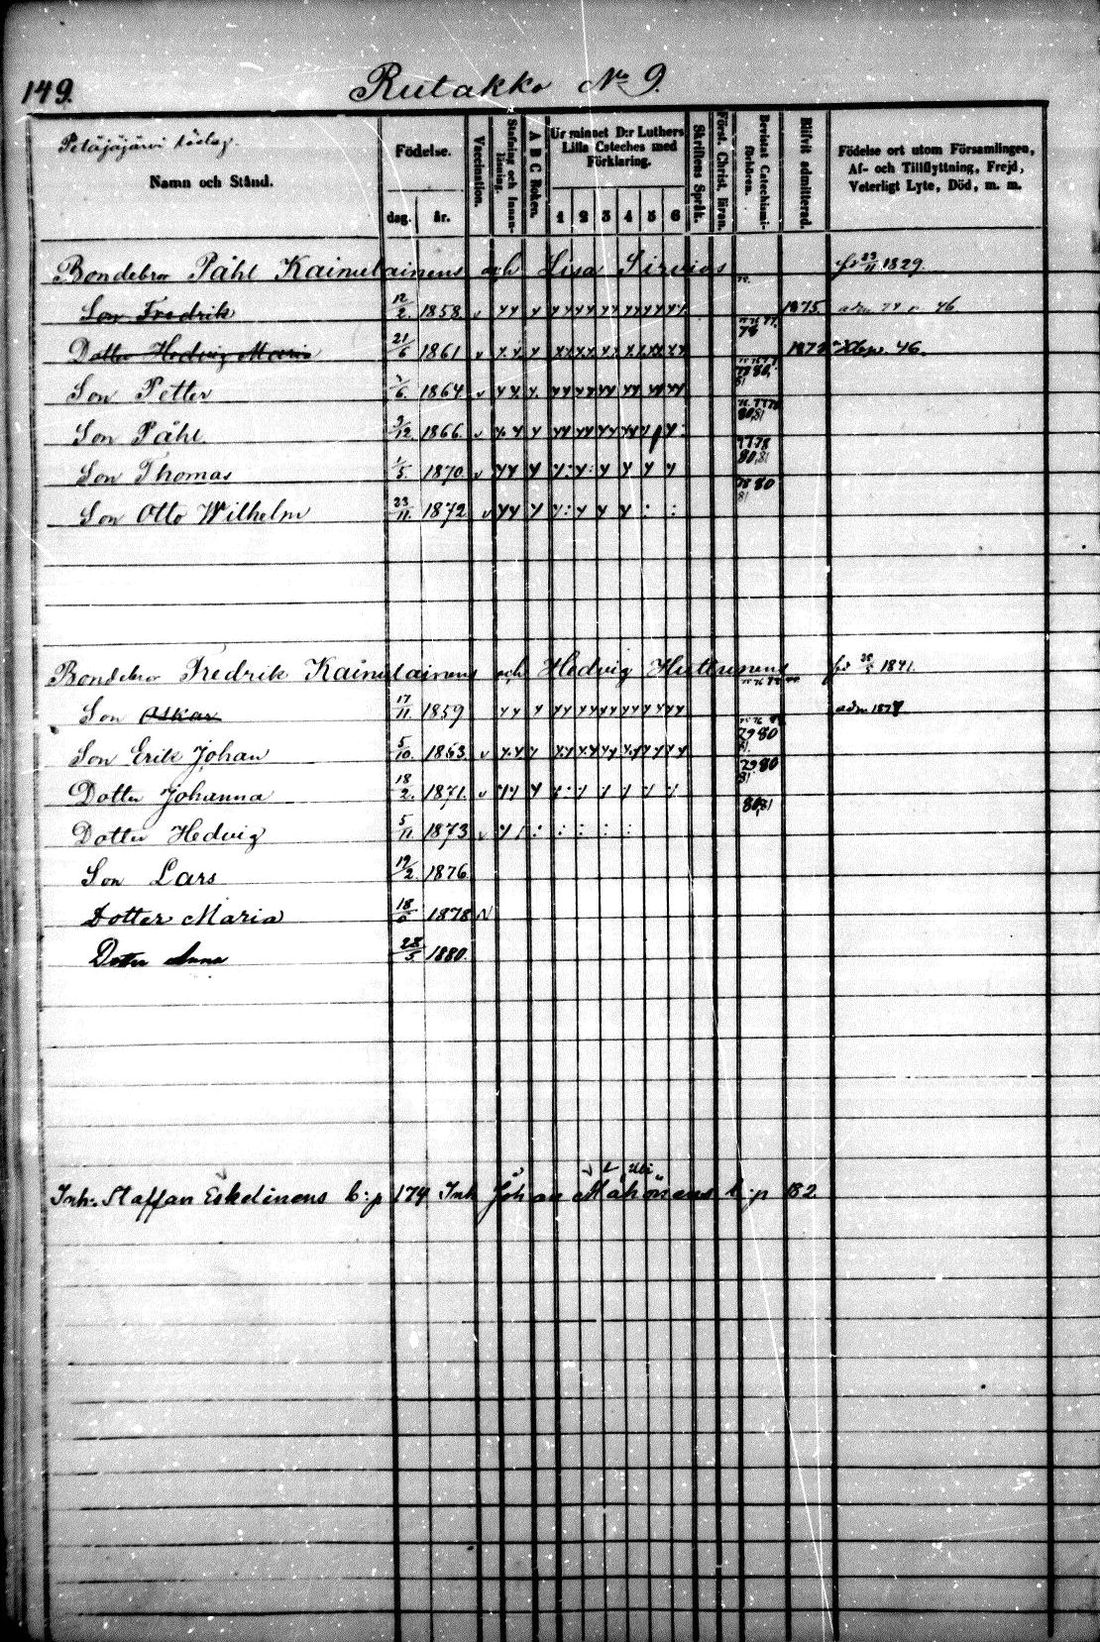 149.
Rutakko No 9.
Petäjäjärvi
Namn och Stånd.
Födelse.
dag. år.
Vaccination.
Stafning och Innanläsning.
A B C Boken.
Ur minnet D:r Luthers Lilla Cateches med Förklaring.
1 2 3 4 5 6
Skriftens Språk.
Först. Christ. läran.
Bevistat Catechismiförhören.
Blifvit admitterad.
Födelse ort utom Församlingen, Af- och Tillflyttning, Frejd, Veterligt Lyte, Död, m. m.
Bondebro Påhl Kainulainens och Lisa Sirviös 23/11 1829.
Son Fredrik 12/2. 1858 1875 46
Dotter Hedvig Maria 21/6 1861 78 46.
Son Petter /6. 1864 81
Son Påhl /12 1866 80,81
Son Thomas /5. 1870 77 78 80,81
Son Otto Wilhelm 23/11. 1872 78 80 81
Bondebro Fredrik Kainulainens och Hedvig Huttunens 1841.
Son Oskar 17/11. 1859
Son Erik Johan 5/10. 1863 79 80 81.
Dotter Johanna 18/2. 1871 79 80 81
Dotter Hedvig 5/11 1873 80,81
Son Lars 19/2. 1876
Dotter Maria 18/ 1878
Dotter Anna 28/5 1880.
Inh. Staffan Eskelinens b:p 174 Inh Johan Mähönens b:p 182